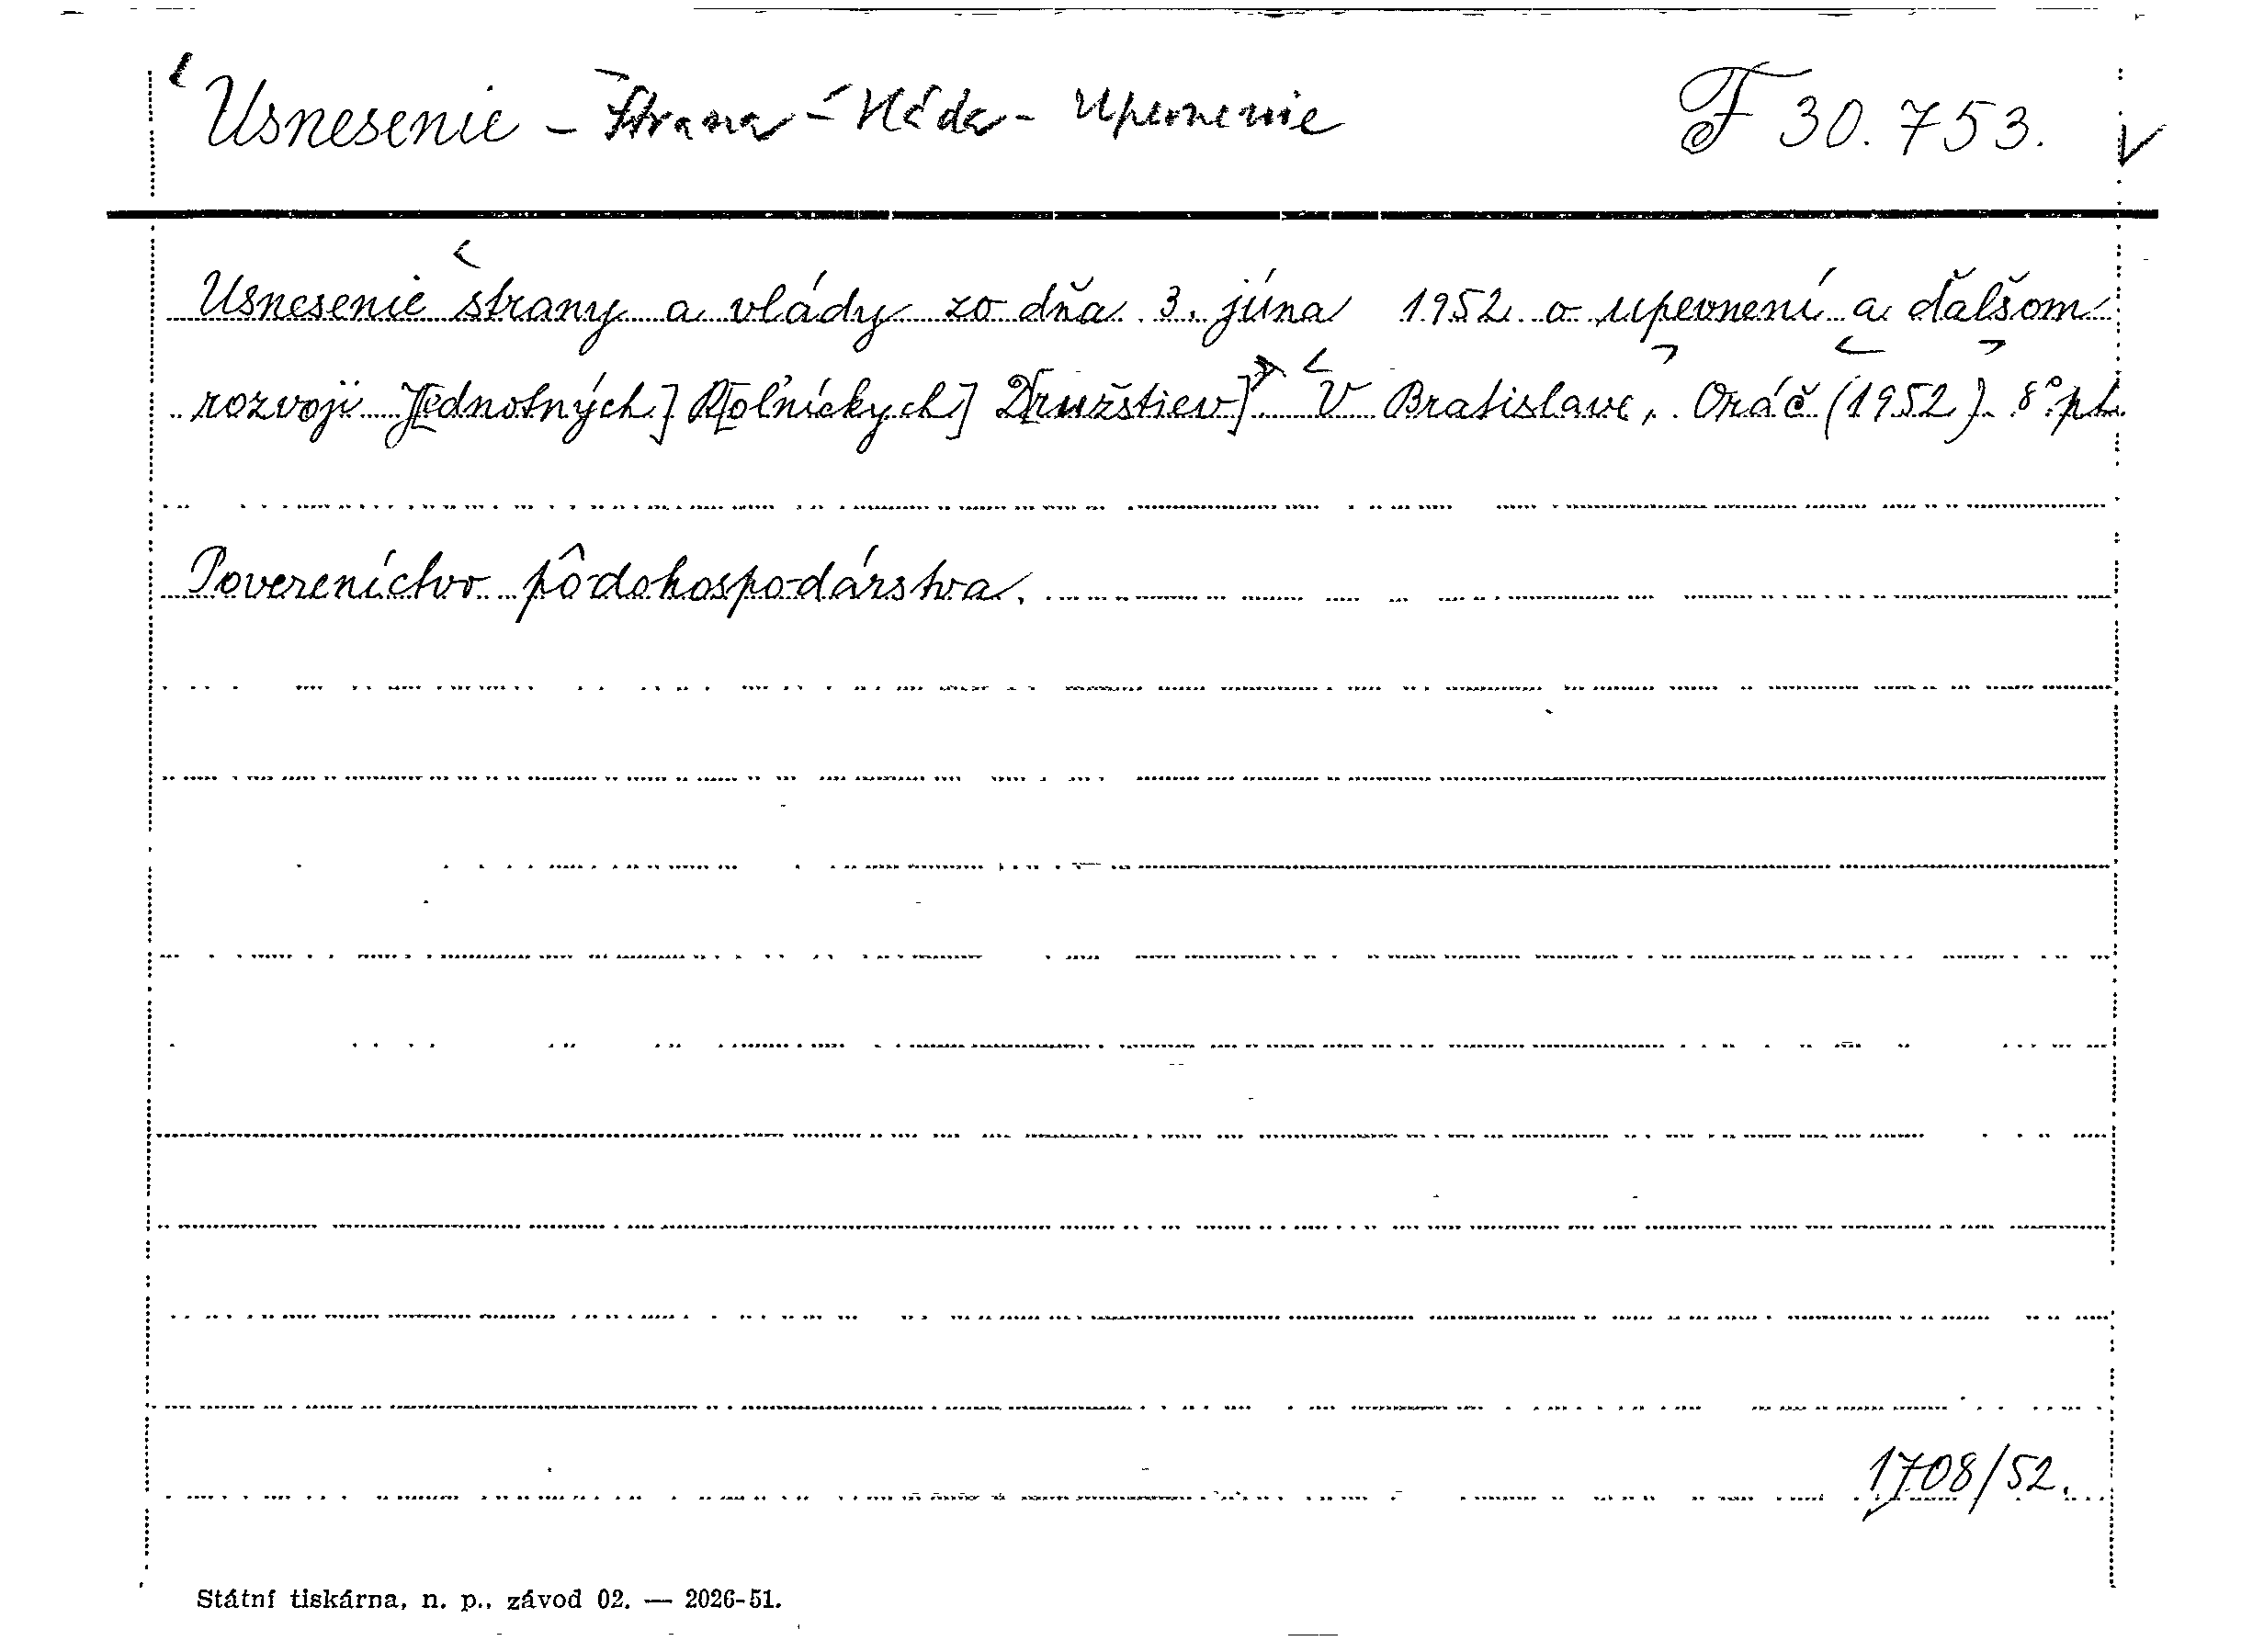 Usnesenie - Strana - Vláda - Upevnenie F 30.753. V
Usnesenie strany a vlády zo dňa 3. júna 1952 o upevnení a ďalšom
rozvoji J[ednotných] R[oľníckych] D[ružstiev]. V Bratislave, Oráč (1952). 8° pl.
Povereníctvo pôdohospodárstva.
1708/52.
Státní tiskárna, n. p., závod 02. — 2026-51.